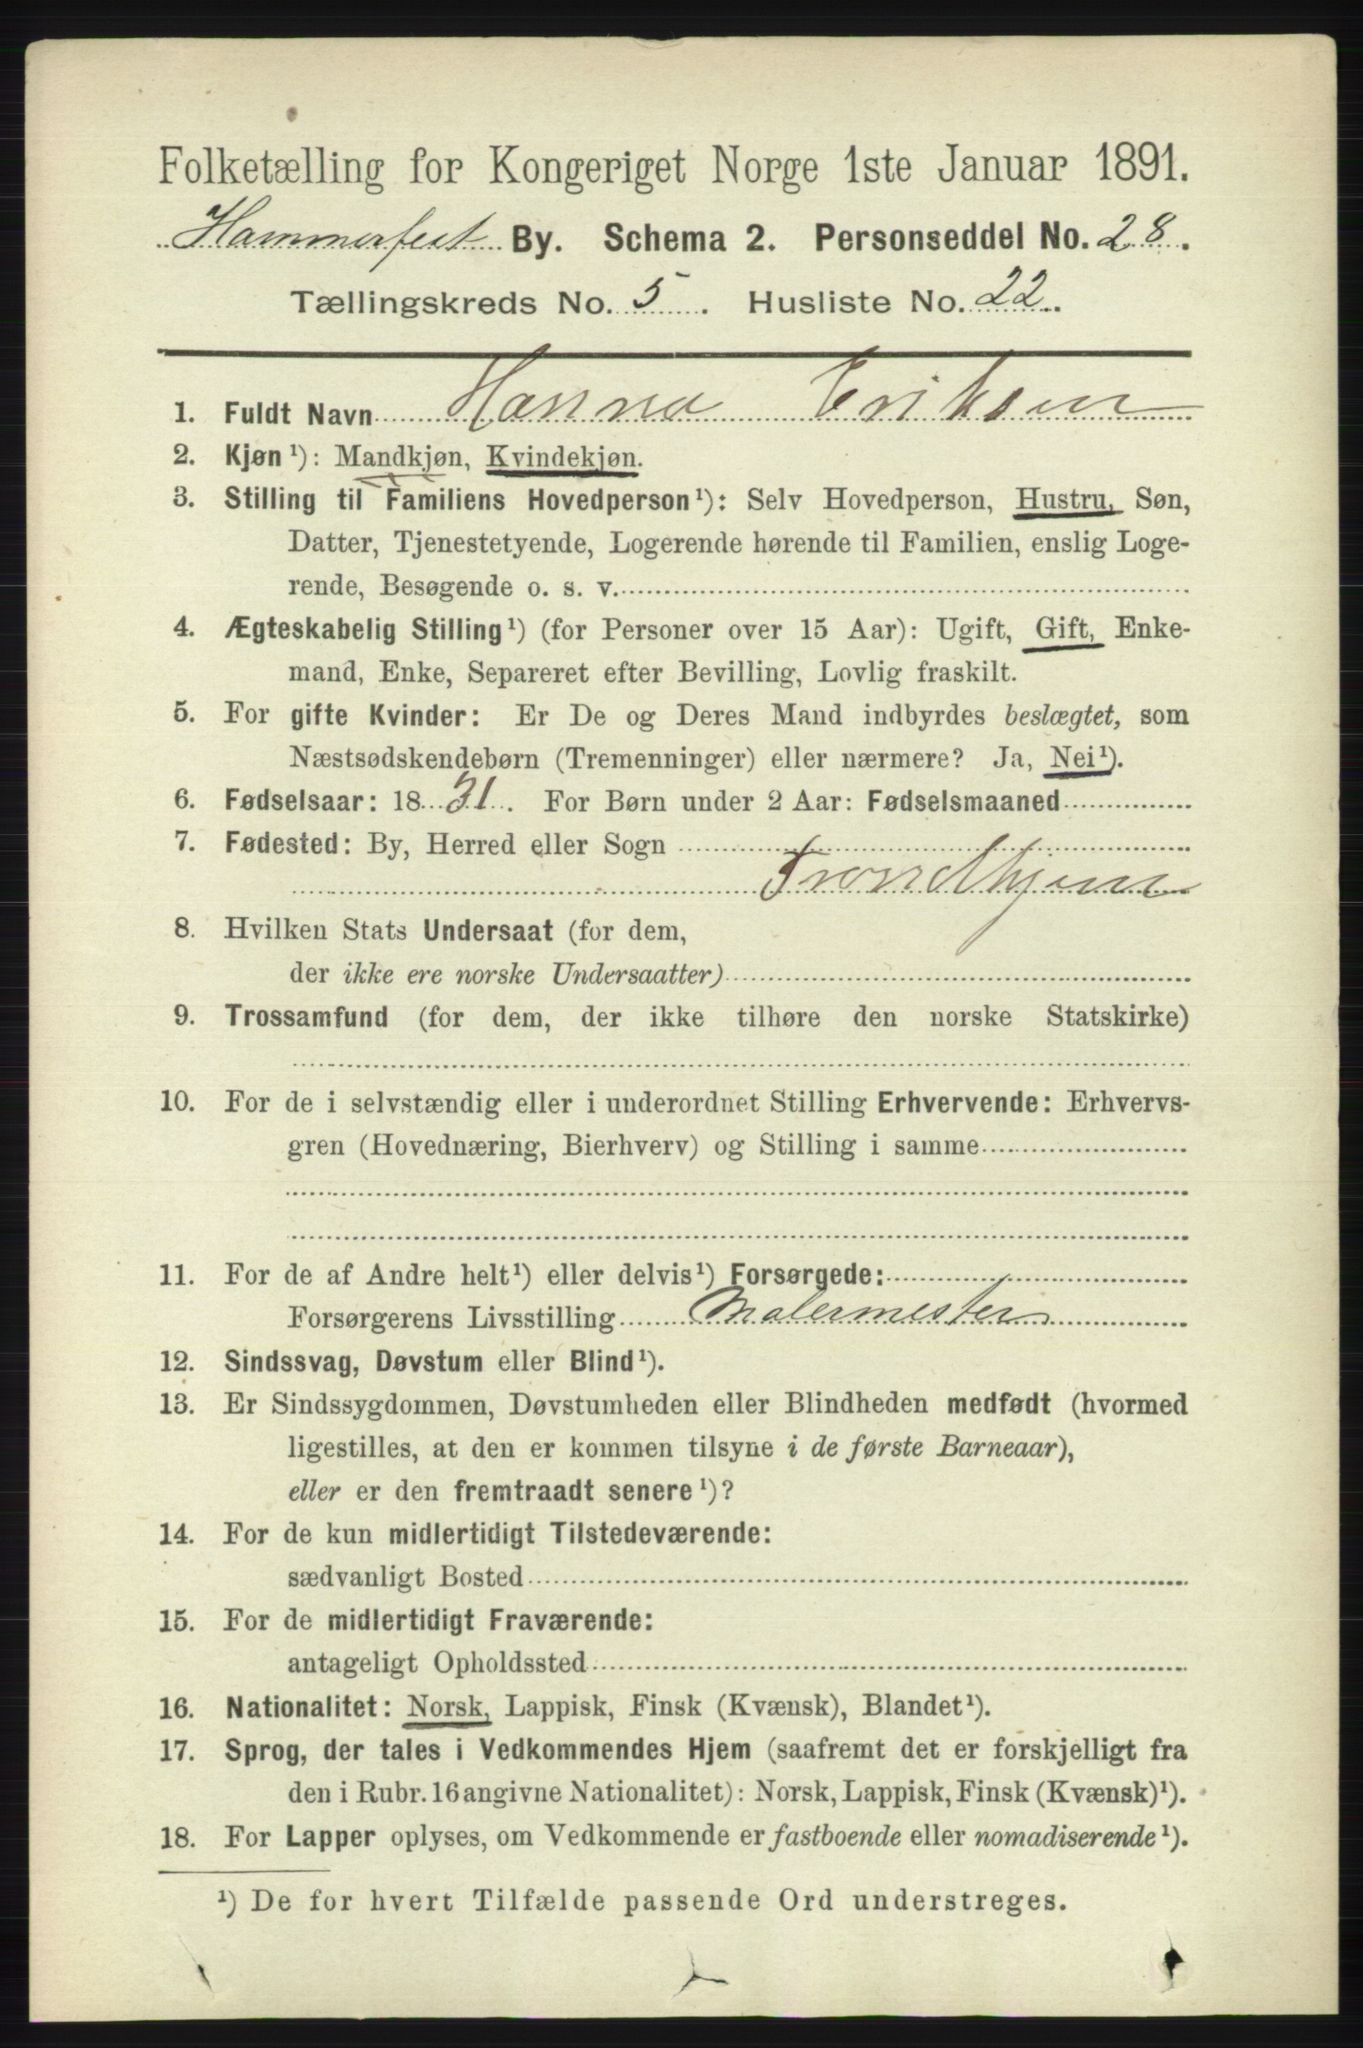 Folketælling for Kongeriget Norge 1ste Januar 1891.
Hammerfest By. Schema 2. Personseddel No. 28.
Tællingskreds No. 5. Husliste No. 22.
1. Fuldt Navn Hanna Eriksen
2. Kjøn ¹): Mandkjøn, Kvindekjøn.
3. Stilling til Familiens Hovedperson ¹): Selv Hovedperson, Hustru, Søn,
Datter, Tjenestetyende, Logerende hørende til Familien, enslig Loge-
rende, Besøgende o. s. v.
4. Ægteskabelig Stilling ¹) (for Personer over 15 Aar): Ugift, Gift, Enke-
mand, Enke, Separeret efter Bevilling, Lovlig fraskilt.
5. For gifte Kvinder: Er De og Deres Mand indbyrdes beslægtet, som
Næstsødskendebørn (Tremenninger) eller nærmere? Ja, Nei ¹).
6. Fødselsaar: 1831. For Børn under 2 Aar: Fødselsmaaned
7. Fødested: By, Herred eller Sogn
Trondhjem
8. Hvilken Stats Undersaat (for dem,
der ikke ere norske Undersaatter)
9. Trossamfund (for dem, der ikke tilhøre den norske Statskirke)
10. For de i selvstændig eller i underordnet Stilling Erhvervende: Erhvervs-
gren (Hovednæring, Bierhverv) og Stilling i samme
11. For de af Andre helt ¹) eller delvis ¹) Forsørgede:
Forsørgerens Livsstilling Malermester
12. Sindssvag, Døvstum eller Blind ¹).
13. Er Sindssygdommen, Døvstumheden eller Blindheden medfødt (hvormed
ligestilles, at den er kommen tilsyne i de første Barneaar),
eller er den fremtraadt senere ¹)?
14. For de kun midlertidigt Tilstedeværende:
sædvanligt Bosted
15. For de midlertidigt Fraværende:
antageligt Opholdssted
16. Nationalitet: Norsk, Lappisk, Finsk (Kvænsk), Blandet ¹).
17. Sprog, der tales i Vedkommendes Hjem (saafremt det er forskjelligt fra
den i Rubr. 16 angivne Nationalitet): Norsk, Lappisk, Finsk (Kvænsk) ¹).
18. For Lapper oplyses, om Vedkommende er fastboende eller nomadiserende ¹).
¹) De for hvert Tilfælde passende Ord understreges.